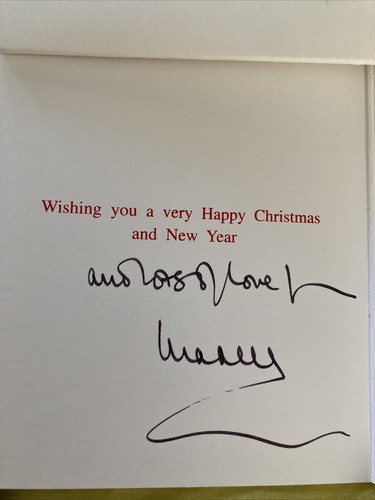 Wishing you a very Happy Christmas
and New Year
and lots of love